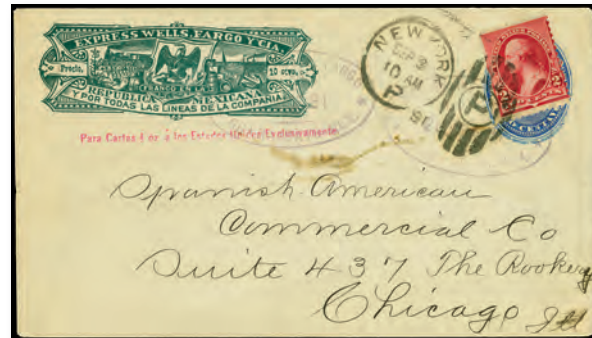 EXPRESS WELLS, FARGO Y CIA.
Precio, 10 ctvs.
FRANCO EN LA
REPUBLICA MEXICANA
Y POR TODAS LAS LINEAS DE LA COMPAÑIA
Para Cartas ¼ oz á los Estados Unidos Exclusivamente
NEW YORK
SEP 2
10 AM
P
91
P
Spanish American
Commercial Co
Suite 437 The Rookery
Chicago Ill